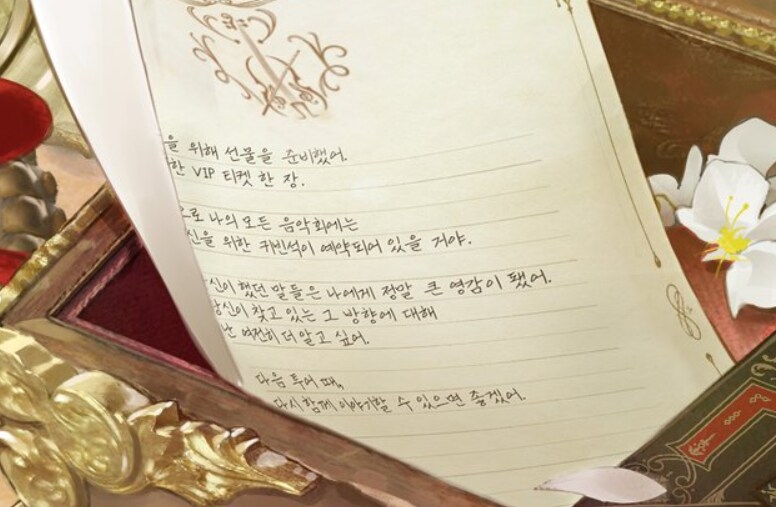 을 위해 선물을 준비했어.
한 VIP 티켓 한 장.
으로 나의 모든 음악회에는
신을 위한 귀빈석이 예약되어 있을 거야.
신이 했던 말들은 나에게 정말 큰 영감이 됐어.
당신이 찾고 있는 그 방향에 대해
난 여전히 더 알고 싶어.
다음 투어 때,
다시 함께 이야기할 수 있으면 좋겠어.